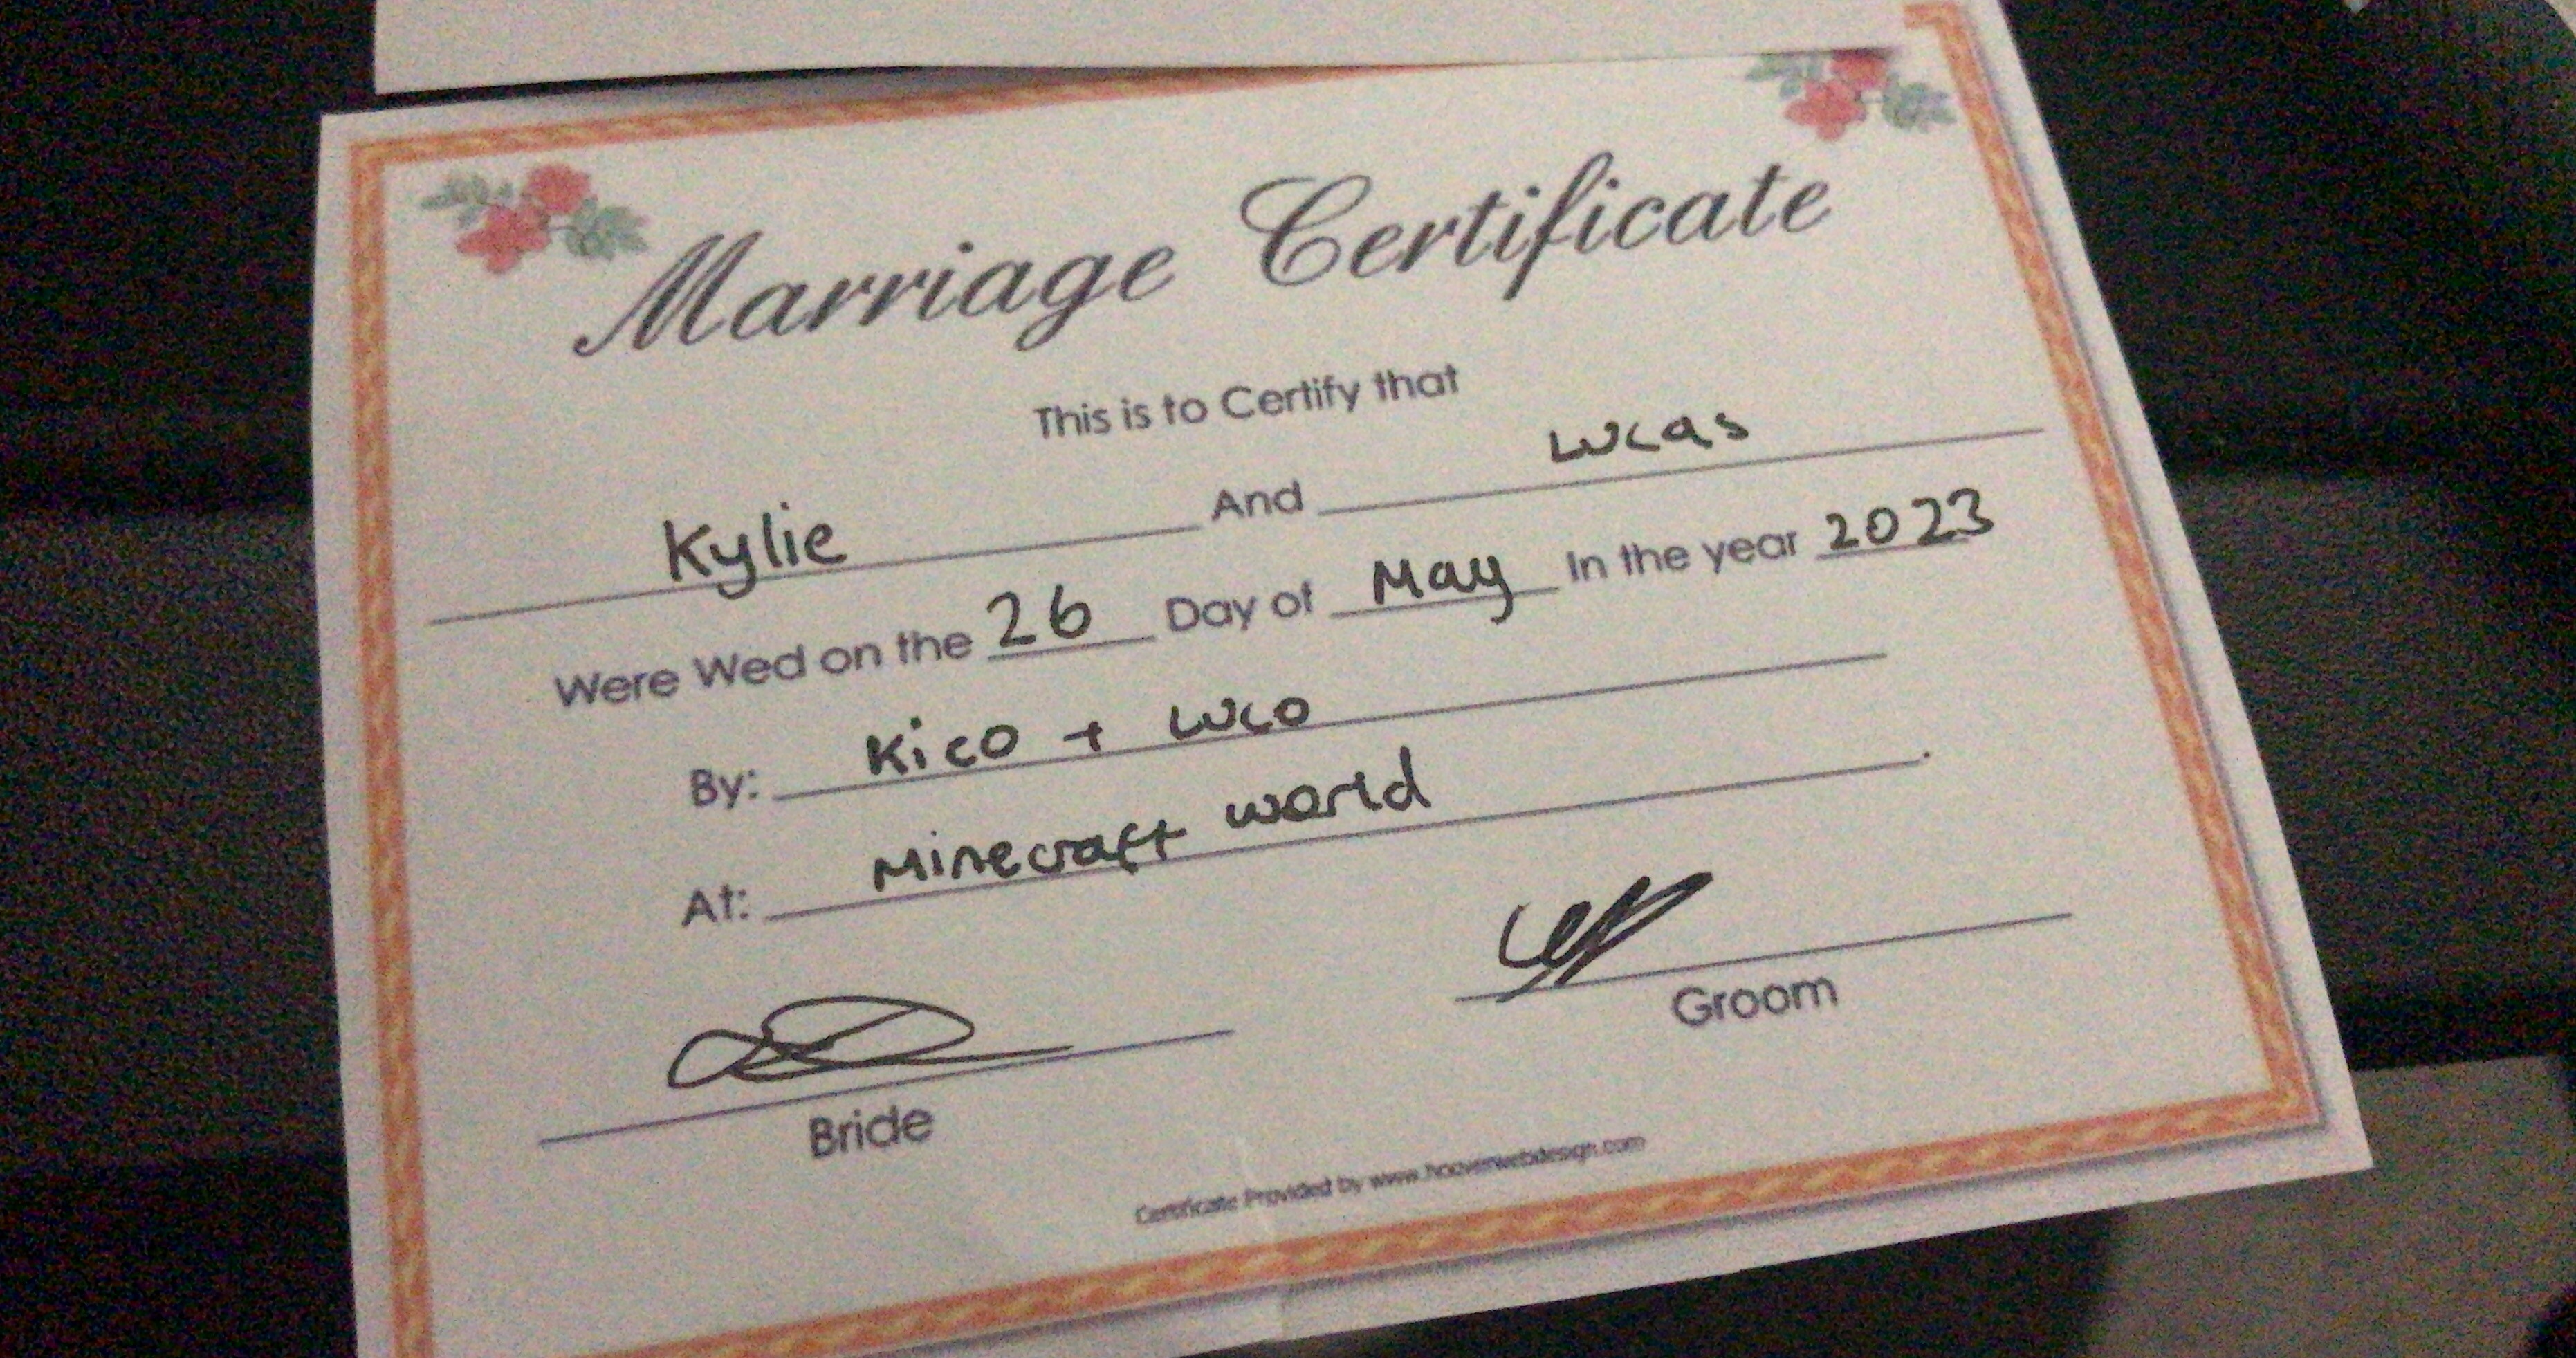 Marriage Certificate
This is to Certify that
Kylie And Lucas
Were Wed on the 26 Day of May In the year 2023
By: Kico + Luco
At: Minecraft world
Bride Groom
Certificate Provided by www.hooverwebdesign.com